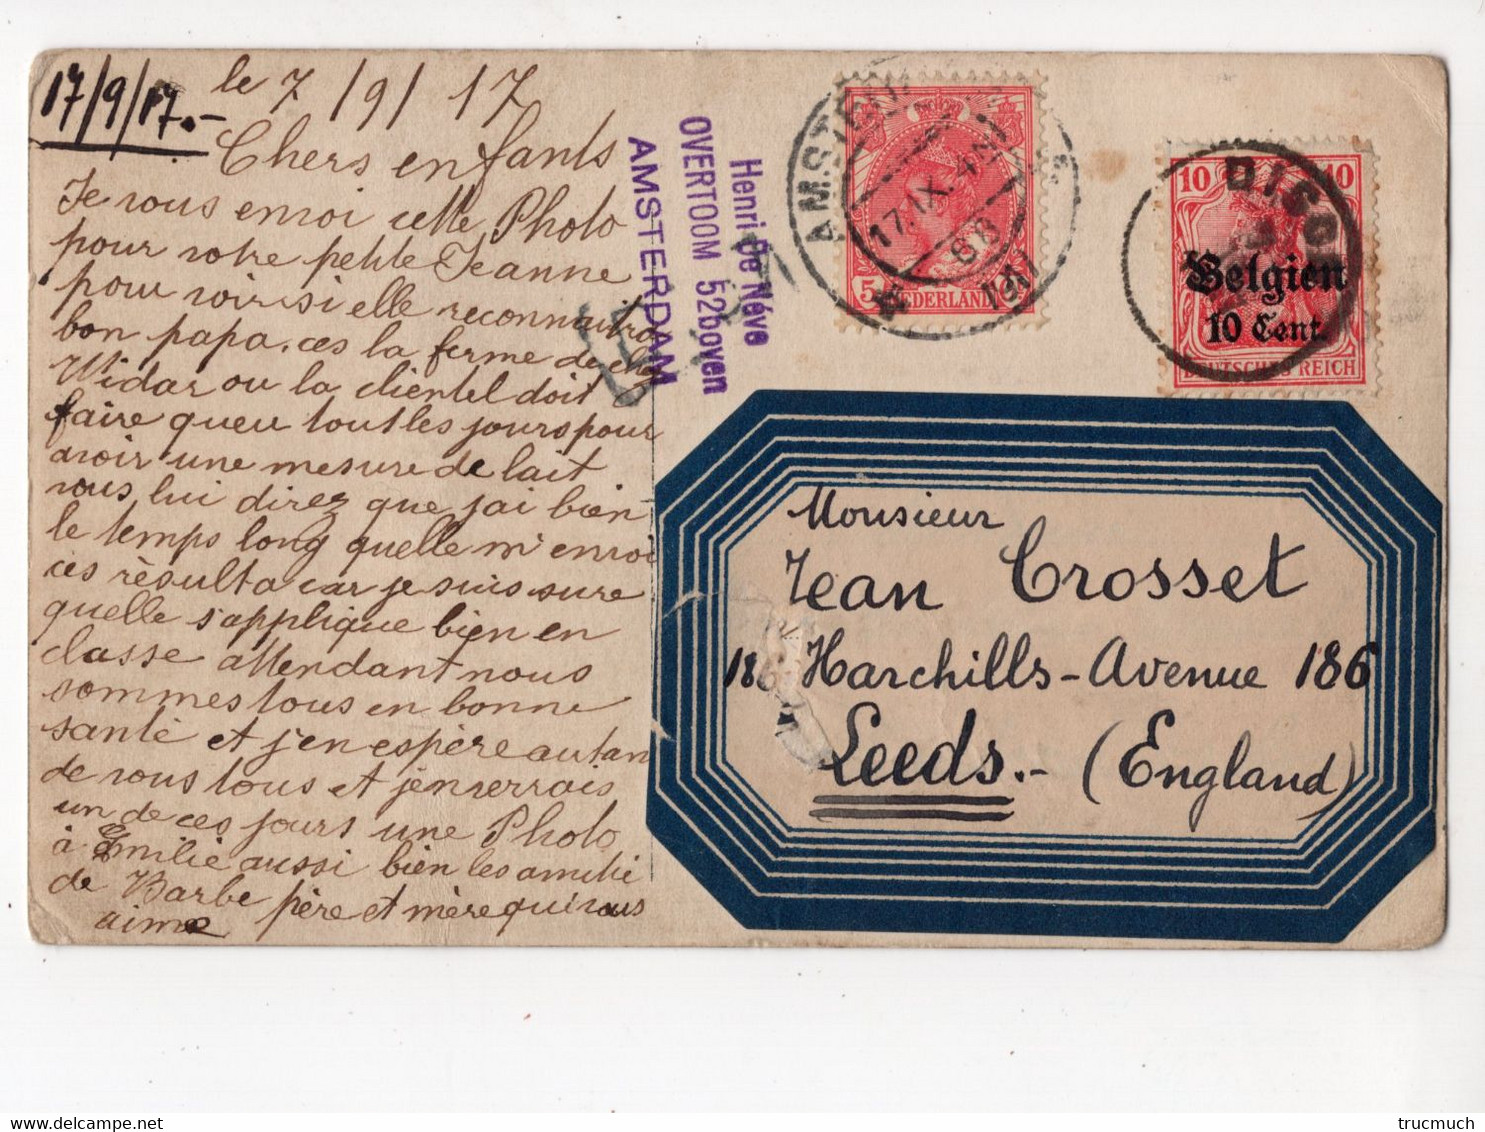 17/9/17.-
le 7/9/17
Chers enfants
Je vous envoi cette Photo
pour votre petite Jeanne
pour voir si elle reconnaitra
bon papa. ces la ferme de chez
Widar ou la clientel doit
faire queu tout les jours pour
avoir une mesure de lait
vous lui direz que j'ai bien
le temps long quelle m'envoi
ces résulta car je suis sure
quelle s'applique bien en
classe attendant nous
sommes tous en bonne
santé et j'en espère autan
de vous tous et j'enverrais
un de ces jours une Photo
à Emilie aussi bien les amitié
de Barbe père et mère qui vous
aime
Henri De Néve
OVERTOOM 52boven
AMSTERDAM
AMSTERDAM
17.IX.
NEDERLAND
5
10 10
Belgien
10 Cent.
DEUTSCHES REICH
Monsieur
Jean Crosset
186 Harchills-Avenue 186
Leeds.- (England)
trucmuch